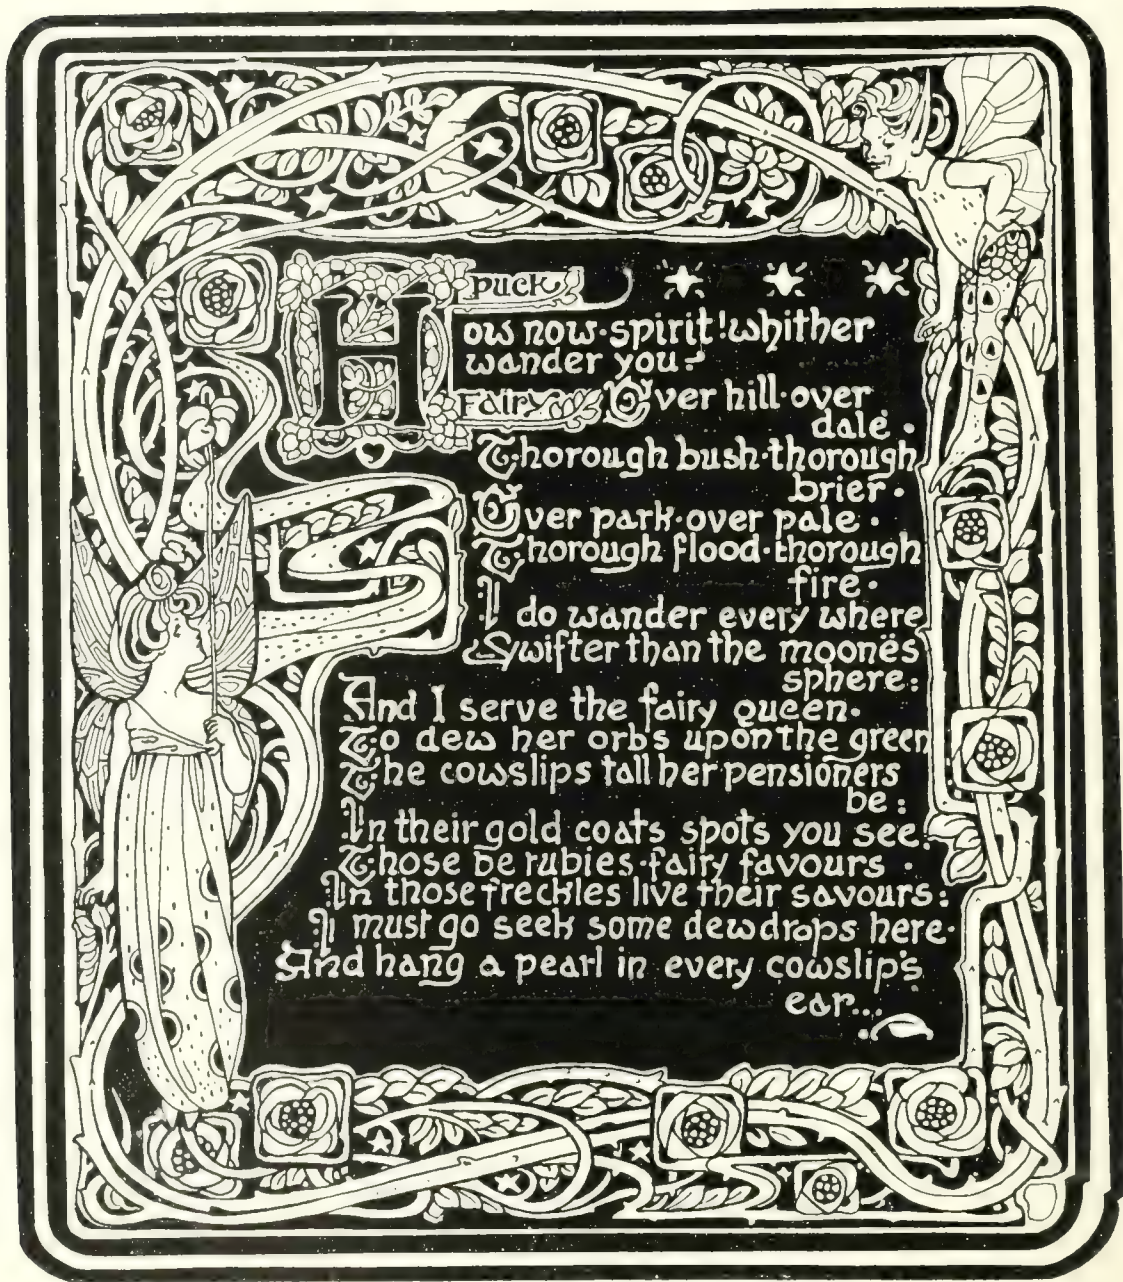 PUCK
How now·spirit! whither
wander you?
Fairy Over hill·over
dale·
Thorough bush·thorough
brier·
Over park·over pale·
Thorough flood·thorough
fire·
I do wander every where
Swifter than the moonës
sphere:
And I serve the fairy queen·
To dew her orbs upon the green
The cowslips tall her pensioners
be:
In their gold coats spots you see:
Those be rubies·fairy favours·
In those freckles live their savours:
I must go seek some dewdrops here·
And hang a pearl in every cowslip's
ear...